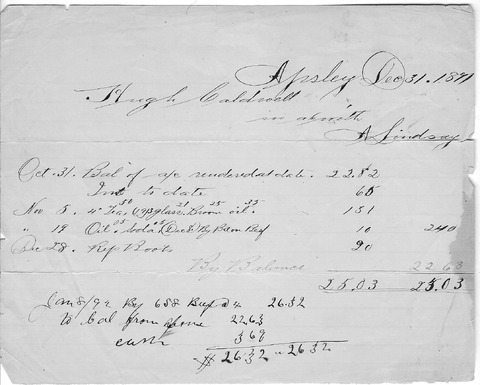 Apsley Dec 31. 1891
Hugh Caldwell
in a/c with
A Lindsay
Oct. 31. Bal of a/c rendered at date. 22 82
Int to date 65
Nov 5. 4# Tea 50 glass 21 Broom 25 oil. 25 1 51
" 19 Oil 05 Soda 05 (Dec 8) By Beef 10 2 40
Dec 28. Rep Boots 20
By Balance 22 63
25.03 25.03
Jan 8/92 By 658 Beef @ 4 26.32
To bal from above 22.63
cash 3 69
$ 26.32 " 26.32